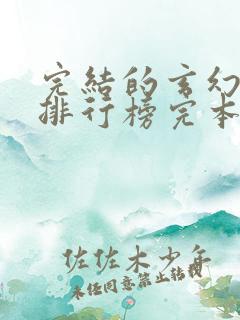 完結的玄幻
排行榜完本
佐佐木少年
未经同意禁止转载